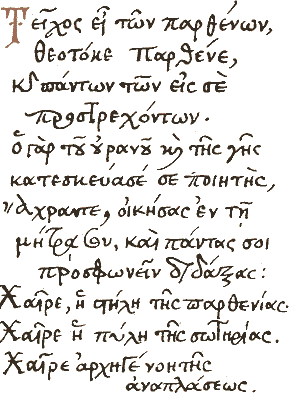 Τεῖχος εἶ τῶν παρθένων,
θεοτόκε Παρθένε,
κ̀ πάντων τῶν εἰς σὲ
προστρεχόντων.
ὁ γὰρ τοῦ οὐρανοῦ κ̀ τῆς γῆς
κατεσκεύασέ σε ποιητὴς,
Ἄχραντε, οἰκήσας ἐν τῇ
μήτρᾳ σου, καὶ πάντας σοι
προσφωνεῖν διδάξας:
Χαῖρε, ἡ στήλη τῆς παρθενίας.
Χαῖρε ἡ πύλη τῆς σωτηρίας.
Χαῖρε ἀρχηγὲ νοητῆς
ἀναπλάσεως.